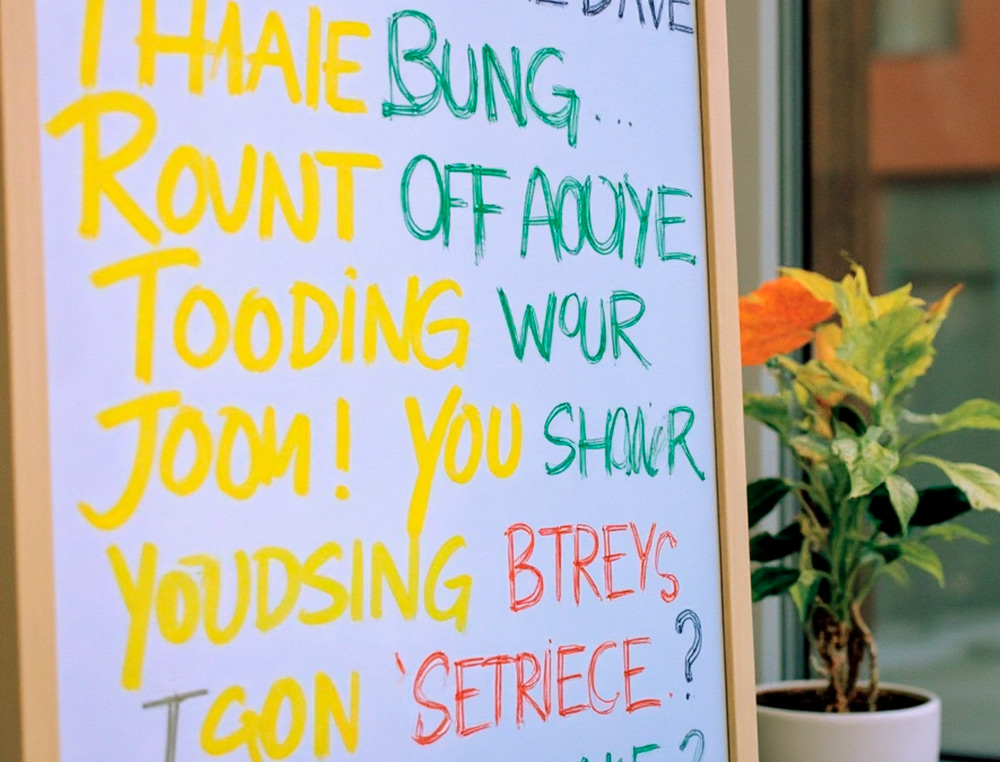 DAVE
THAAIE BUNG...
ROUNT OFF AOUIYE
TOODING WOUR
JOOM! YOU SHOWR
YOUDSING BTREYS
TGON 'SETRIECE.?
?